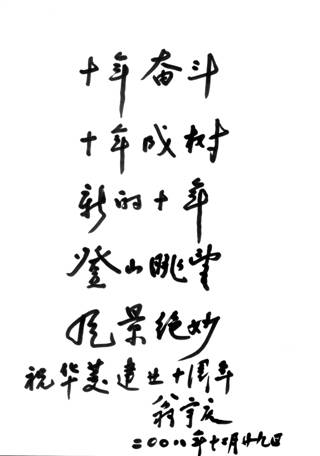 十年奋斗
十年成树
新的十年
登山眺望
风景绝妙
祝华菱建业十周年
翁宇庆
二〇〇八年十二月廿九日